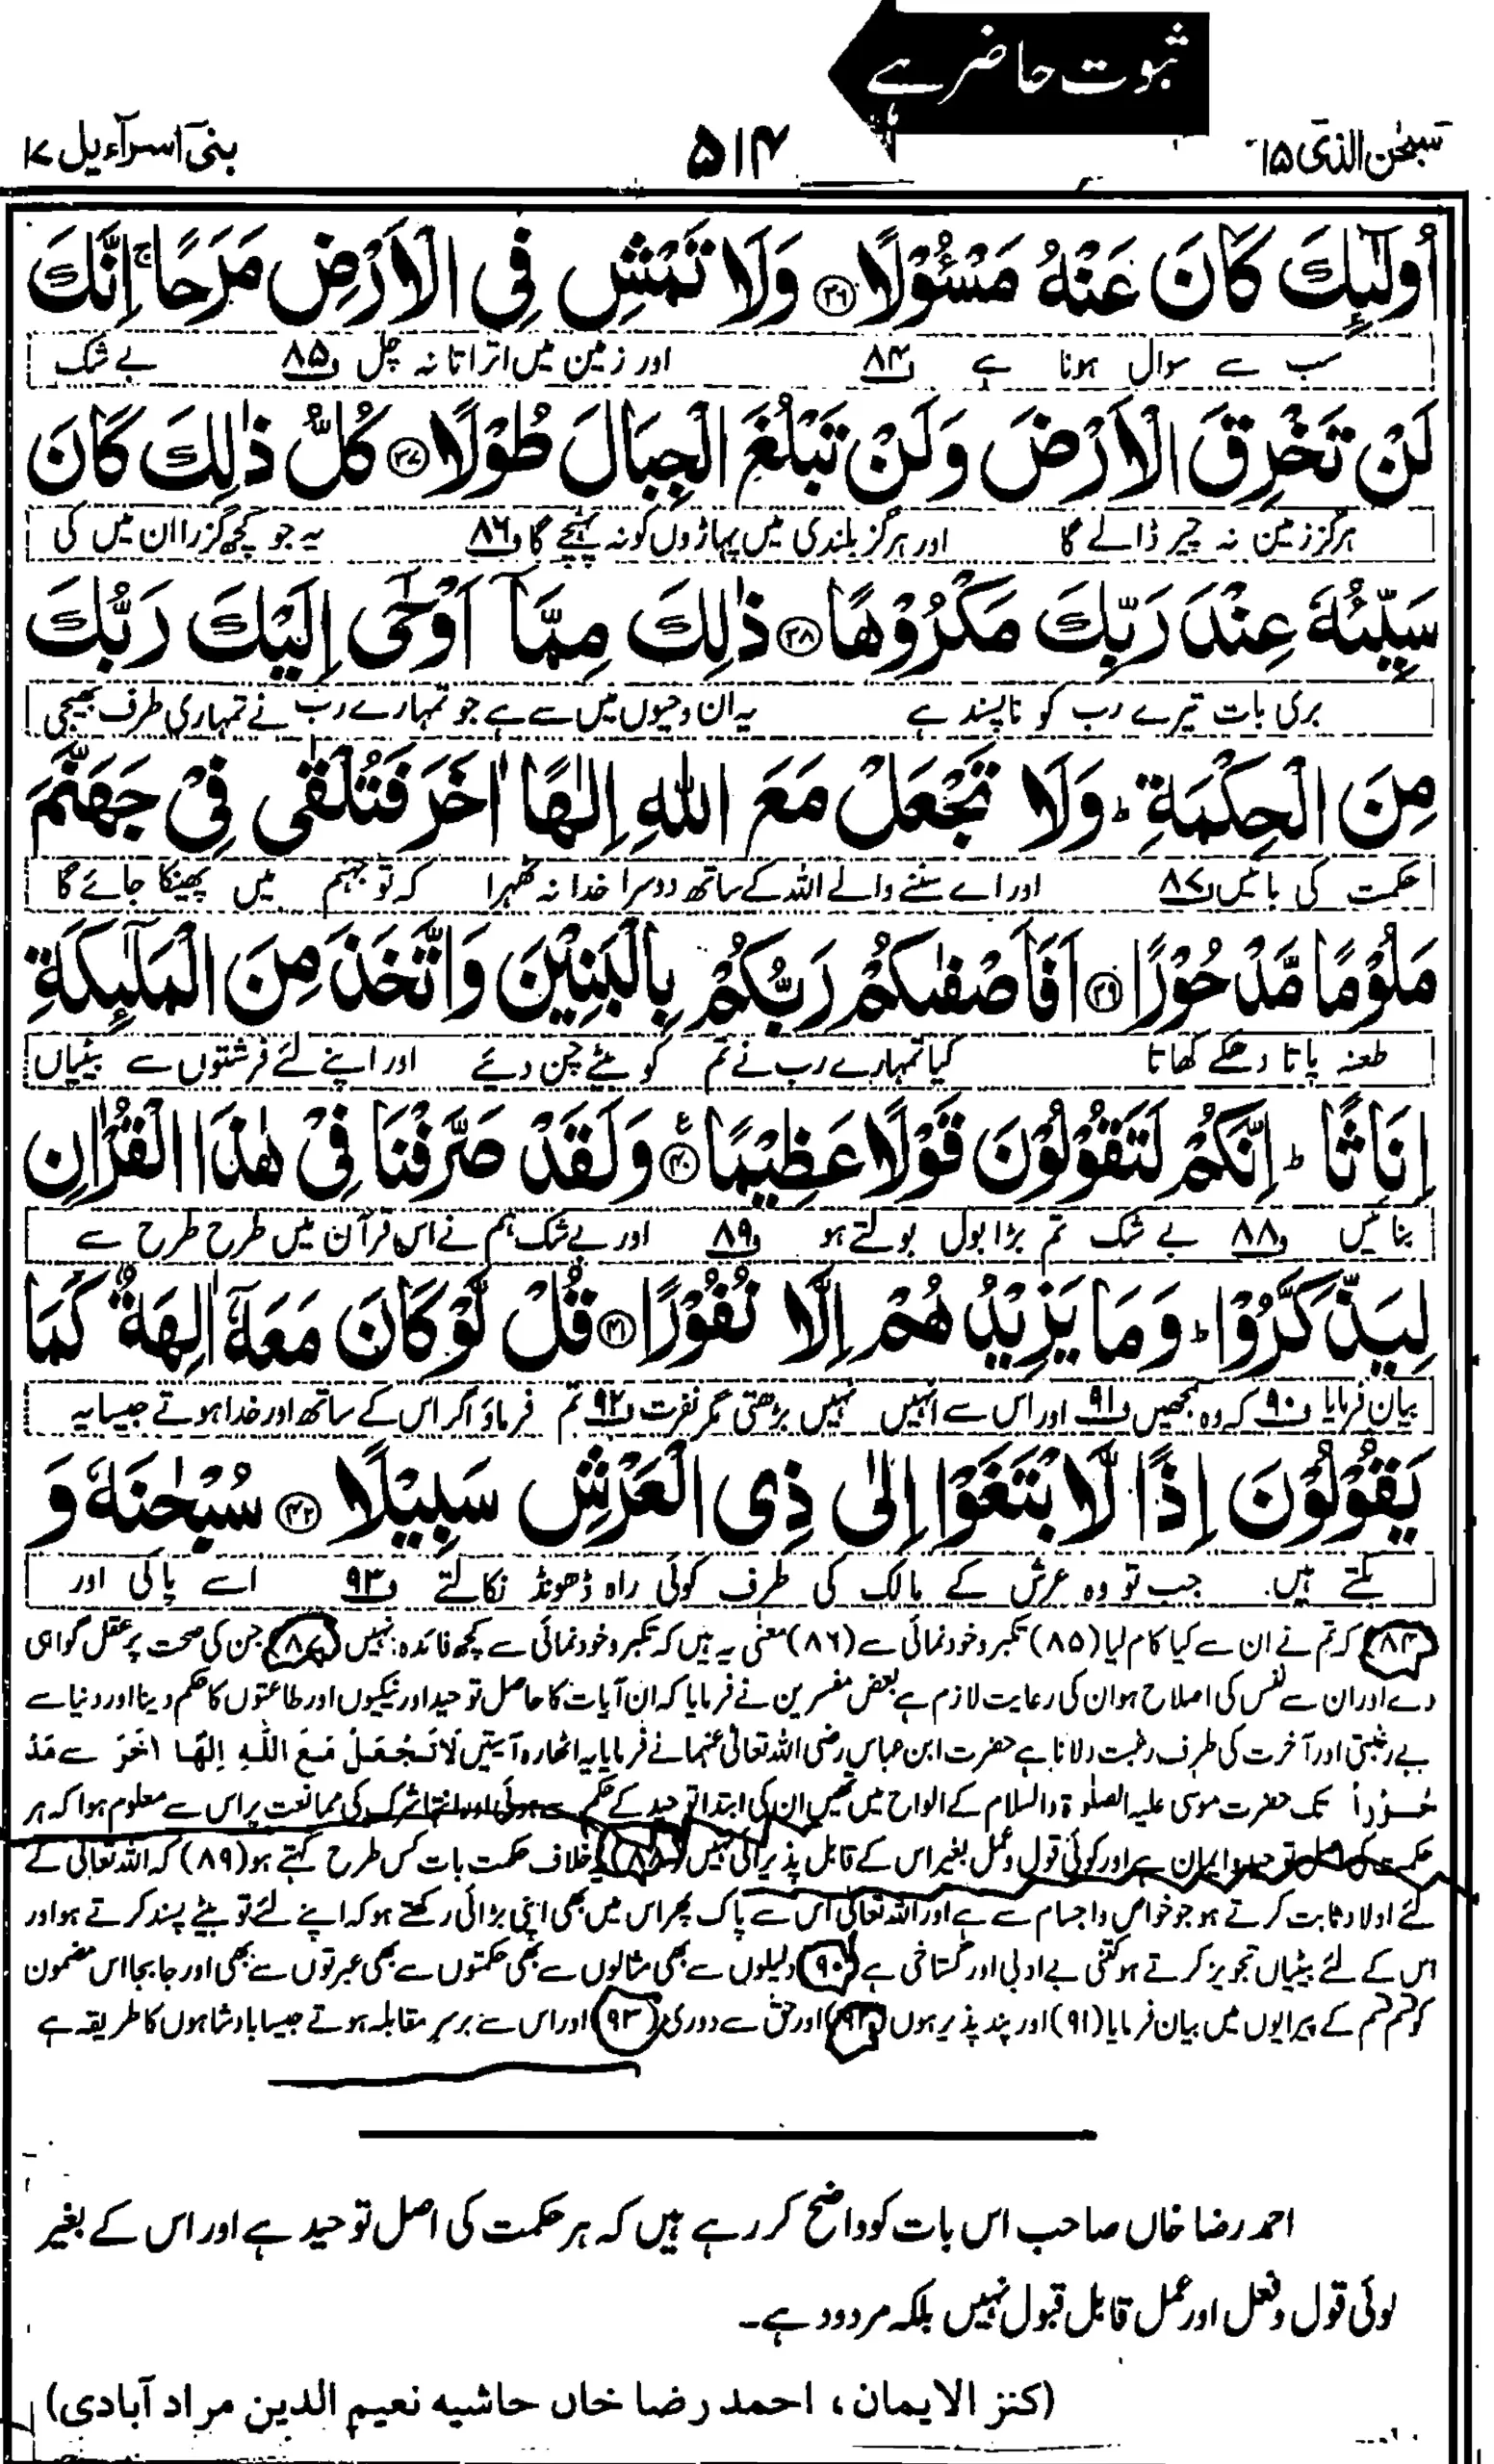 ثبوت حاضر ہے
سبحٰن الذی ۱۵
۵۱۴
بنیٓ اسرآءیل ۱۷
اُولٰٓىِٕكَ كَانَ عَنْهُ مَسْـُٔوْلًا ﴿۳۶﴾ وَلَا تَمْشِ فِی الْاَرْضِ مَرَحًا ۚ اِنَّكَ
سب سے سوال ہونا ہے و۸۴ اور زمین میں اتراتا نہ چل و۸۵ بے شک
لَنْ تَخْرِقَ الْاَرْضَ وَلَنْ تَبْلُغَ الْجِبَالَ طُوْلًا ﴿۳۷﴾ كُلُّ ذٰلِكَ كَانَ
ہرگز زمین نہ چیر ڈالے گا اور ہرگز بلندی میں پہاڑوں کو نہ پہنچے گا و۸۶ یہ جو کچھ گزرا ان میں کی
سَیِّئُهٗ عِنْدَ رَبِّكَ مَكْرُوْهًا ﴿۳۸﴾ ذٰلِكَ مِمَّاۤ اَوْحٰۤی اِلَیْكَ رَبُّكَ
بری بات تیرے رب کو ناپسند ہے یہ ان وحیوں میں سے ہے جو تمہارے رب نے تمہاری طرف بھیجی
مِنَ الْحِكْمَةِ ؕ وَلَا تَجْعَلْ مَعَ اللّٰهِ اِلٰهًا اٰخَرَ فَتُلْقٰی فِیْ جَهَنَّمَ
حکمت کی باتیں و۸۷ اور اے سننے والے اللہ کے ساتھ دوسرا خدا نہ ٹھہرا کہ تو جہنم میں پھینکا جائے گا
مَلُوْمًا مَّدْحُوْرًا ﴿۳۹﴾ اَفَاَصْفٰىكُمْ رَبُّكُمْ بِالْبَنِیْنَ وَاتَّخَذَ مِنَ الْمَلٰٓىِٕكَةِ
طعنہ پاتا دھکے کھاتا کیا تمہارے رب نے تم کو بیٹے چن دیئے اور اپنے لئے فرشتوں سے بیٹیاں
اِنَاثًا ؕ اِنَّكُمْ لَتَقُوْلُوْنَ قَوْلًا عَظِیْمًا ﴿۴۰﴾ ع وَلَقَدْ صَرَّفْنَا فِیْ هٰذَا الْقُرْاٰنِ
بنائیں و۸۸ بے شک تم بڑا بول بولتے ہو و۸۹ اور بے شک ہم نے اس قرآن میں طرح طرح سے
لِیَذَّكَّرُوْا ؕ وَمَا یَزِیْدُهُمْ اِلَّا نُفُوْرًا ﴿۴۱﴾ قُلْ لَّوْ كَانَ مَعَهٗۤ اٰلِهَةٌ كَمَا
بیان فرمایا و۹۰ کہ وہ سمجھیں و۹۱ اور اس سے انہیں نہیں بڑھتی مگر نفرت و۹۲ تم فرماؤ اگر اس کے ساتھ اور خدا ہوتے جیسا یہ
یَقُوْلُوْنَ اِذًا لَّابْتَغَوْا اِلٰی ذِی الْعَرْشِ سَبِیْلًا ﴿۴۲﴾ سُبْحٰنَهٗ وَ
بکتے ہیں جب تو وہ عرش کے مالک کی طرف کوئی راہ ڈھونڈ نکالتے و۹۳ اسے پاکی اور
(۸۴) کہ تم نے ان سے کیا کام لیا (۸۵) تکبر و خودنمائی سے (۸۶) معنی یہ ہیں کہ تکبر و خودنمائی سے کچھ فائدہ نہیں (۸۷) جن کی صحت پر عقل گواہی
دے اور ان سے نفس کی اصلاح ہو ان کی رعایت لازم ہے بعض مفسرین نے فرمایا کہ ان آیات کا حاصل توحید اور نیکیوں اور طاعتوں کا حکم دینا اور دنیا سے
بے رغبتی اور آخرت کی طرف رغبت دلانا ہے حضرت ابن عباس رضی اللہ تعالیٰ عنہما نے فرمایا یہ اٹھارہ آیتیں لَا تَجْعَلْ مَعَ اللّٰهِ اِلٰهًا اٰخَرَ سے مَدْ
حُوْرًا تک حضرت موسیٰ علیہ الصلوٰۃ والسلام کے الواح میں تھیں ان کی ابتدا توحید کے حکم سے ہوئی اور انتہا شرک کی ممانعت پر اس سے معلوم ہوا کہ ہر
حکمت کی اصل توحید و ایمان ہے اور کوئی قول و عمل بغیر اس کے قابل پذیرائی نہیں (۸۸) یہ خلاف حکمت بات کس طرح کہتے ہو (۸۹) کہ اللہ تعالیٰ کے
لئے اولاد ثابت کرتے ہو جو خواص و اجسام سے ہے اور اللہ تعالیٰ اس سے پاک پھر اس میں بھی اپنی بڑائی رکھتے ہو کہ اپنے لئے تو بیٹے پسند کرتے ہو اور
اس کے لئے بیٹیاں تجویز کرتے ہو کتنی بے ادبی اور گستاخی ہے (۹۰) دلیلوں سے بھی مثالوں سے بھی حکمتوں سے بھی عبرتوں سے بھی اور جا بجا اس مضمون
کو قسم قسم کے پیرایوں میں بیان فرمایا (۹۱) اور پند پذیر ہوں (۹۲) اور حق سے دوری (۹۳) اور اس سے برسر مقابلہ ہوتے جیسا بادشاہوں کا طریقہ ہے
احمد رضا خاں صاحب اس بات کو واضح کر رہے ہیں کہ ہر حکمت کی اصل توحید ہے اور اس کے بغیر
کوئی قول و فعل اور عمل قابل قبول نہیں بلکہ مردود ہے۔
(کنز الایمان، احمد رضا خاں حاشیہ نعیم الدین مراد آبادی)